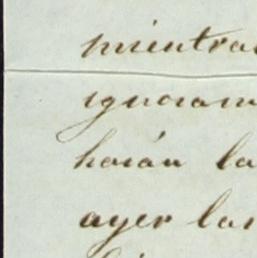 mientras
ignoram
harán la
ayer lar